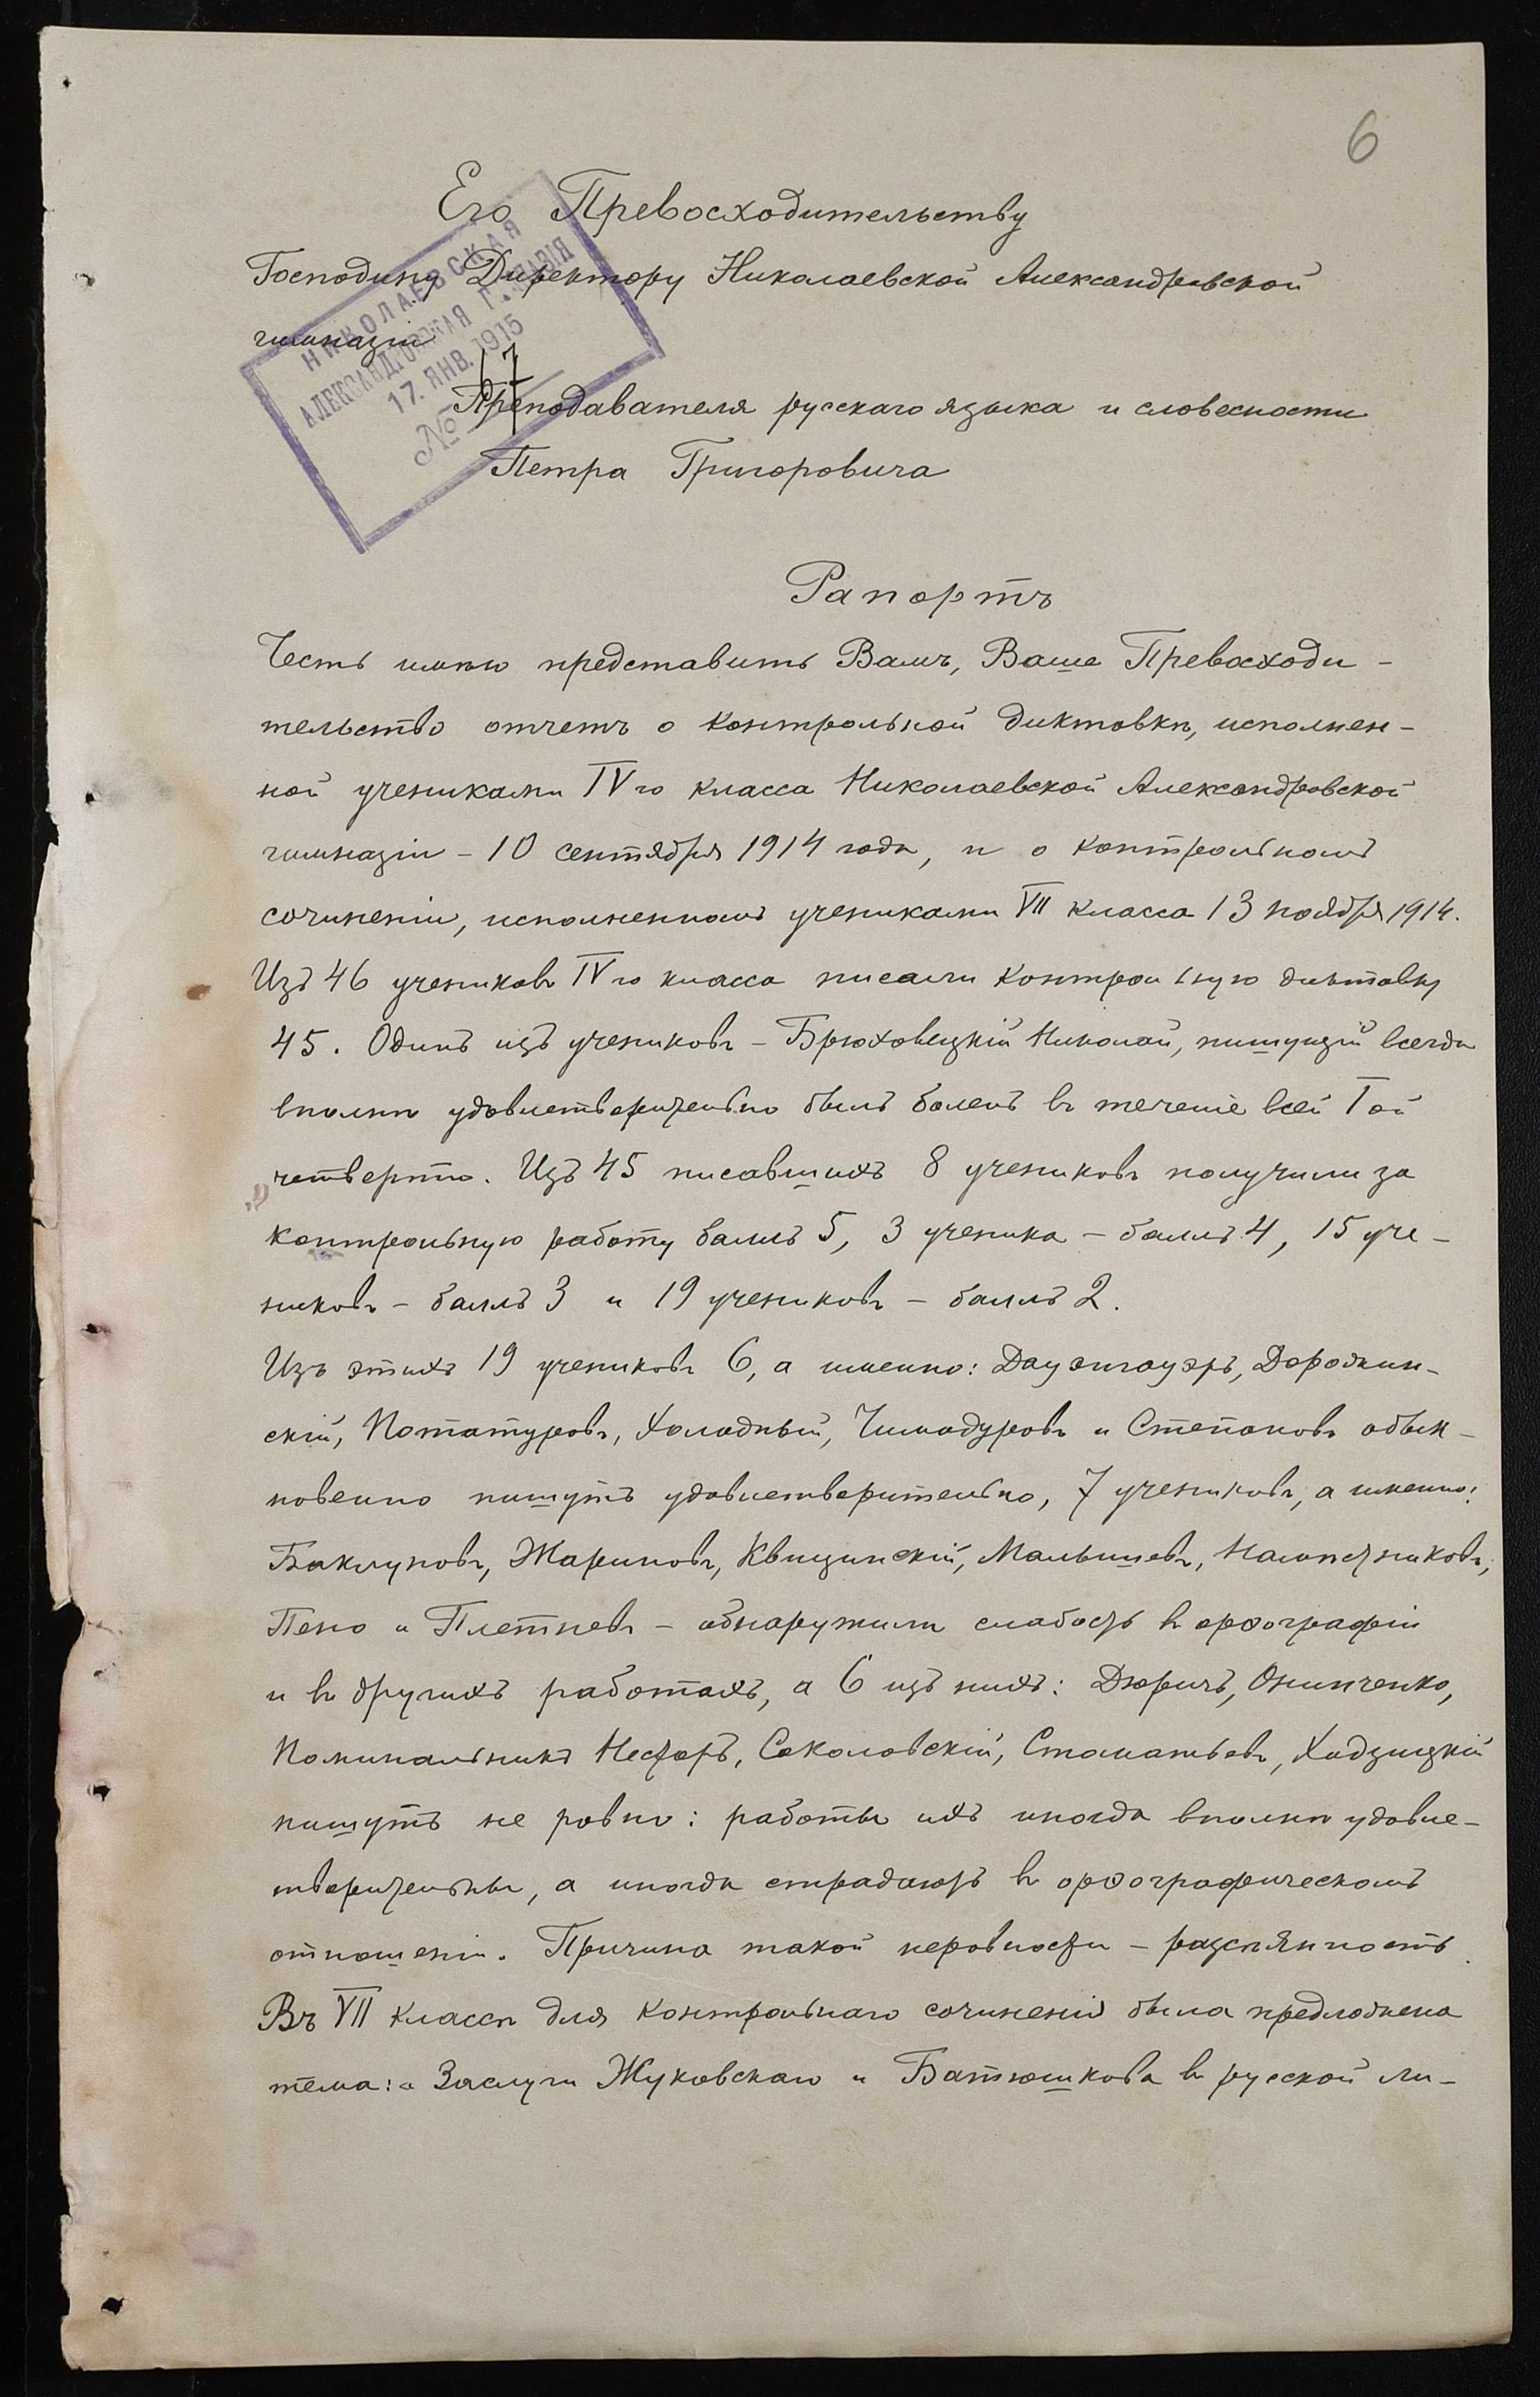 6
Его Превосходительству
Господину Директору Николаевской Александровской
гимназіи
НИКОЛАЕВСКАЯ
АЛЕКСАНДРОВСКАЯ ГИМНАЗІЯ
17. ЯНВ. 1915
№ 17
Преподавателя русскаго языка и словесности
Петра Григоровича
Рапортъ
Честь имѣю представить Вамъ, Ваше Превосходи-
тельство отчетъ о контрольной диктовкѣ, исполнен-
ной учениками IVго класса Николаевской Александровской
гимназіи – 10 сентября 1914 года, и о контрольномъ
сочиненіи, исполненномъ учениками VII класса 13 ноября 1914.
Изъ 46 учениковъ IVго класса писали контрольную диктовку
45. Одинъ изъ учениковъ – Брюховецкій Николай, пишущій всегда
вполнѣ удовлетворительно былъ боленъ въ теченіе всей Iой
четверти. Изъ 45 писавшихъ 8 учениковъ получили за
контрольную работу баллъ 5, 3 ученика – баллъ 4, 15 уче-
никовъ – баллъ 3 и 19 учениковъ – баллъ 2.
Изъ этихъ 19 учениковъ 6, а именно: Дауэнгауэръ, Дорожин-
скій, Потатуровъ, Холодный, Чимодуровъ и Степановъ обык-
новенно пишутъ удовлетворительно, 7 учениковъ, а именно:
Баклуновъ, Жариновъ, Квицинскій, Малышевъ,
Пено и Плетневъ – обнаружили слабость въ орѳографіи
и въ другихъ работахъ, а 6 изъ нихъ: Дюричъ, Онипченко,
Поминальникъ Несторъ, Соколовскій, Стоматьевъ, Ходзицкій
пишутъ не ровно: работы ихъ иногда вполнѣ удовле-
творительны, а иногда страдаютъ въ орѳографическомъ
отношеніи. Причина такой неровности – разсѣянность.
Въ VII классѣ для контрольнаго сочиненія была предложена
тема: „Заслуги Жуковскаго и Батюшкова въ русской ли-